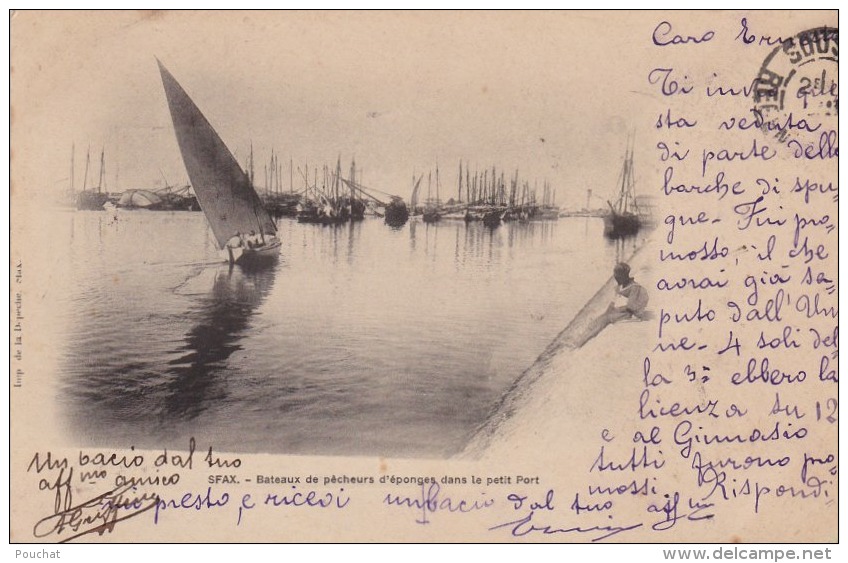 Caro
SOUS
Ti
sta veduta
di parte delle
barche di spu
gne - Fui pro-
mosso, il che
avrai già sa-
puto dall'Un
ne - 4 soli del
la 3ª ebbero la
licenza su 12
e al Ginnasio
tutti furono pro
mossi. Rispondi-
mi presto, e ricevi un bacio dal tuo aff mo
Un bacio dal tuo
aff mo amico
SFAX. - Bateaux de pêcheurs d'éponges dans le petit Port
Imp. de la Dépêche, Sfax.
Pouchat
http://www.delcampe.net